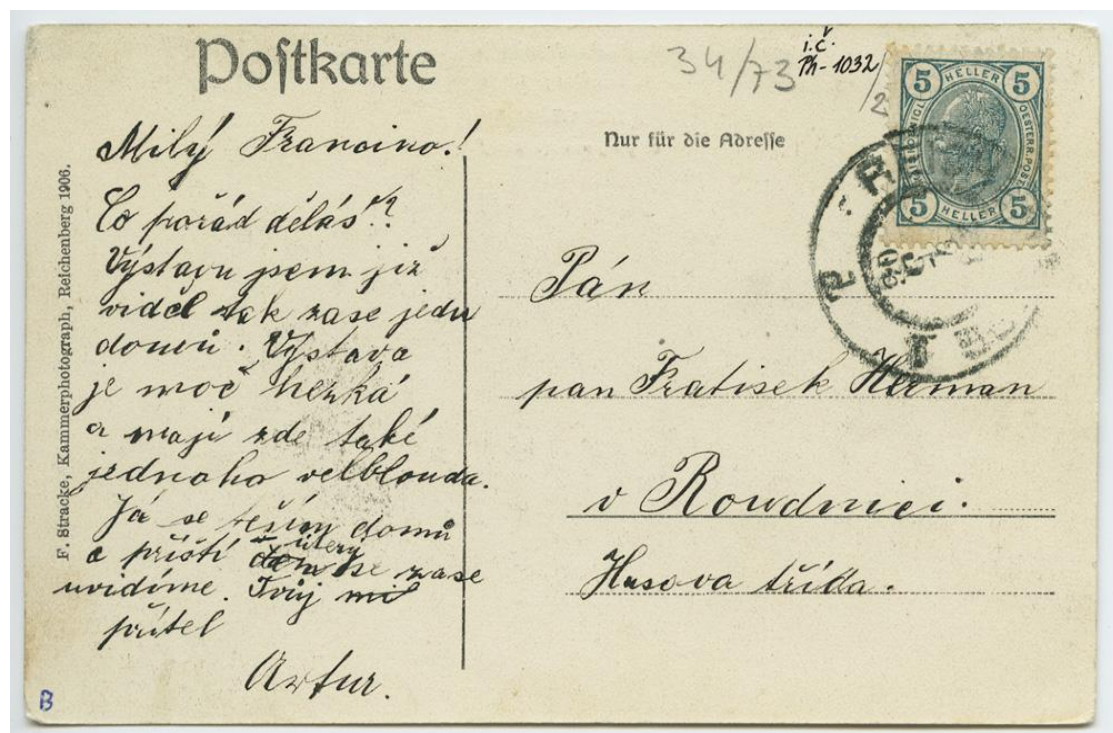 Postkarte
34/73
i.č.
Ph-1032/
2
5 HELLER 5
OESTERR. POST
5 HELLER 5
Nur für die Adresse
F. Stracke, Kammerphotograph, Reichenberg 1906.
Milý Francino!
Co pořád děláš??
Výstavu jsem již
viděl tak zase jedu
domů. Výstava
je moc hezká
a mají zde také
jednoho velblouda.
Já se těším domů
a příští v úterý se zase
uvidíme. Tvůj
přítel
Artur.
Pán
pan Fratisek Herman
v Roudnici.
Husova třída.
B